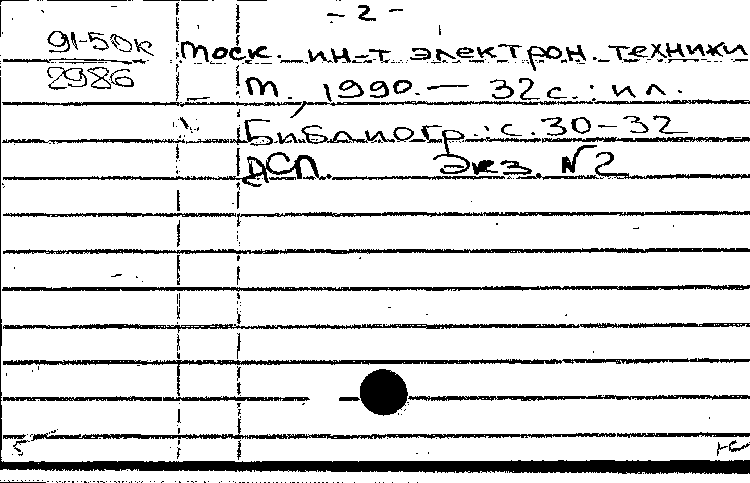 - 2 -
91-50к Моск. ин-т электрон. техники
2986 М., 1990. — 32 с. : ил.
Библиогр.: с. 30-32
ДСП. Экз. № 2